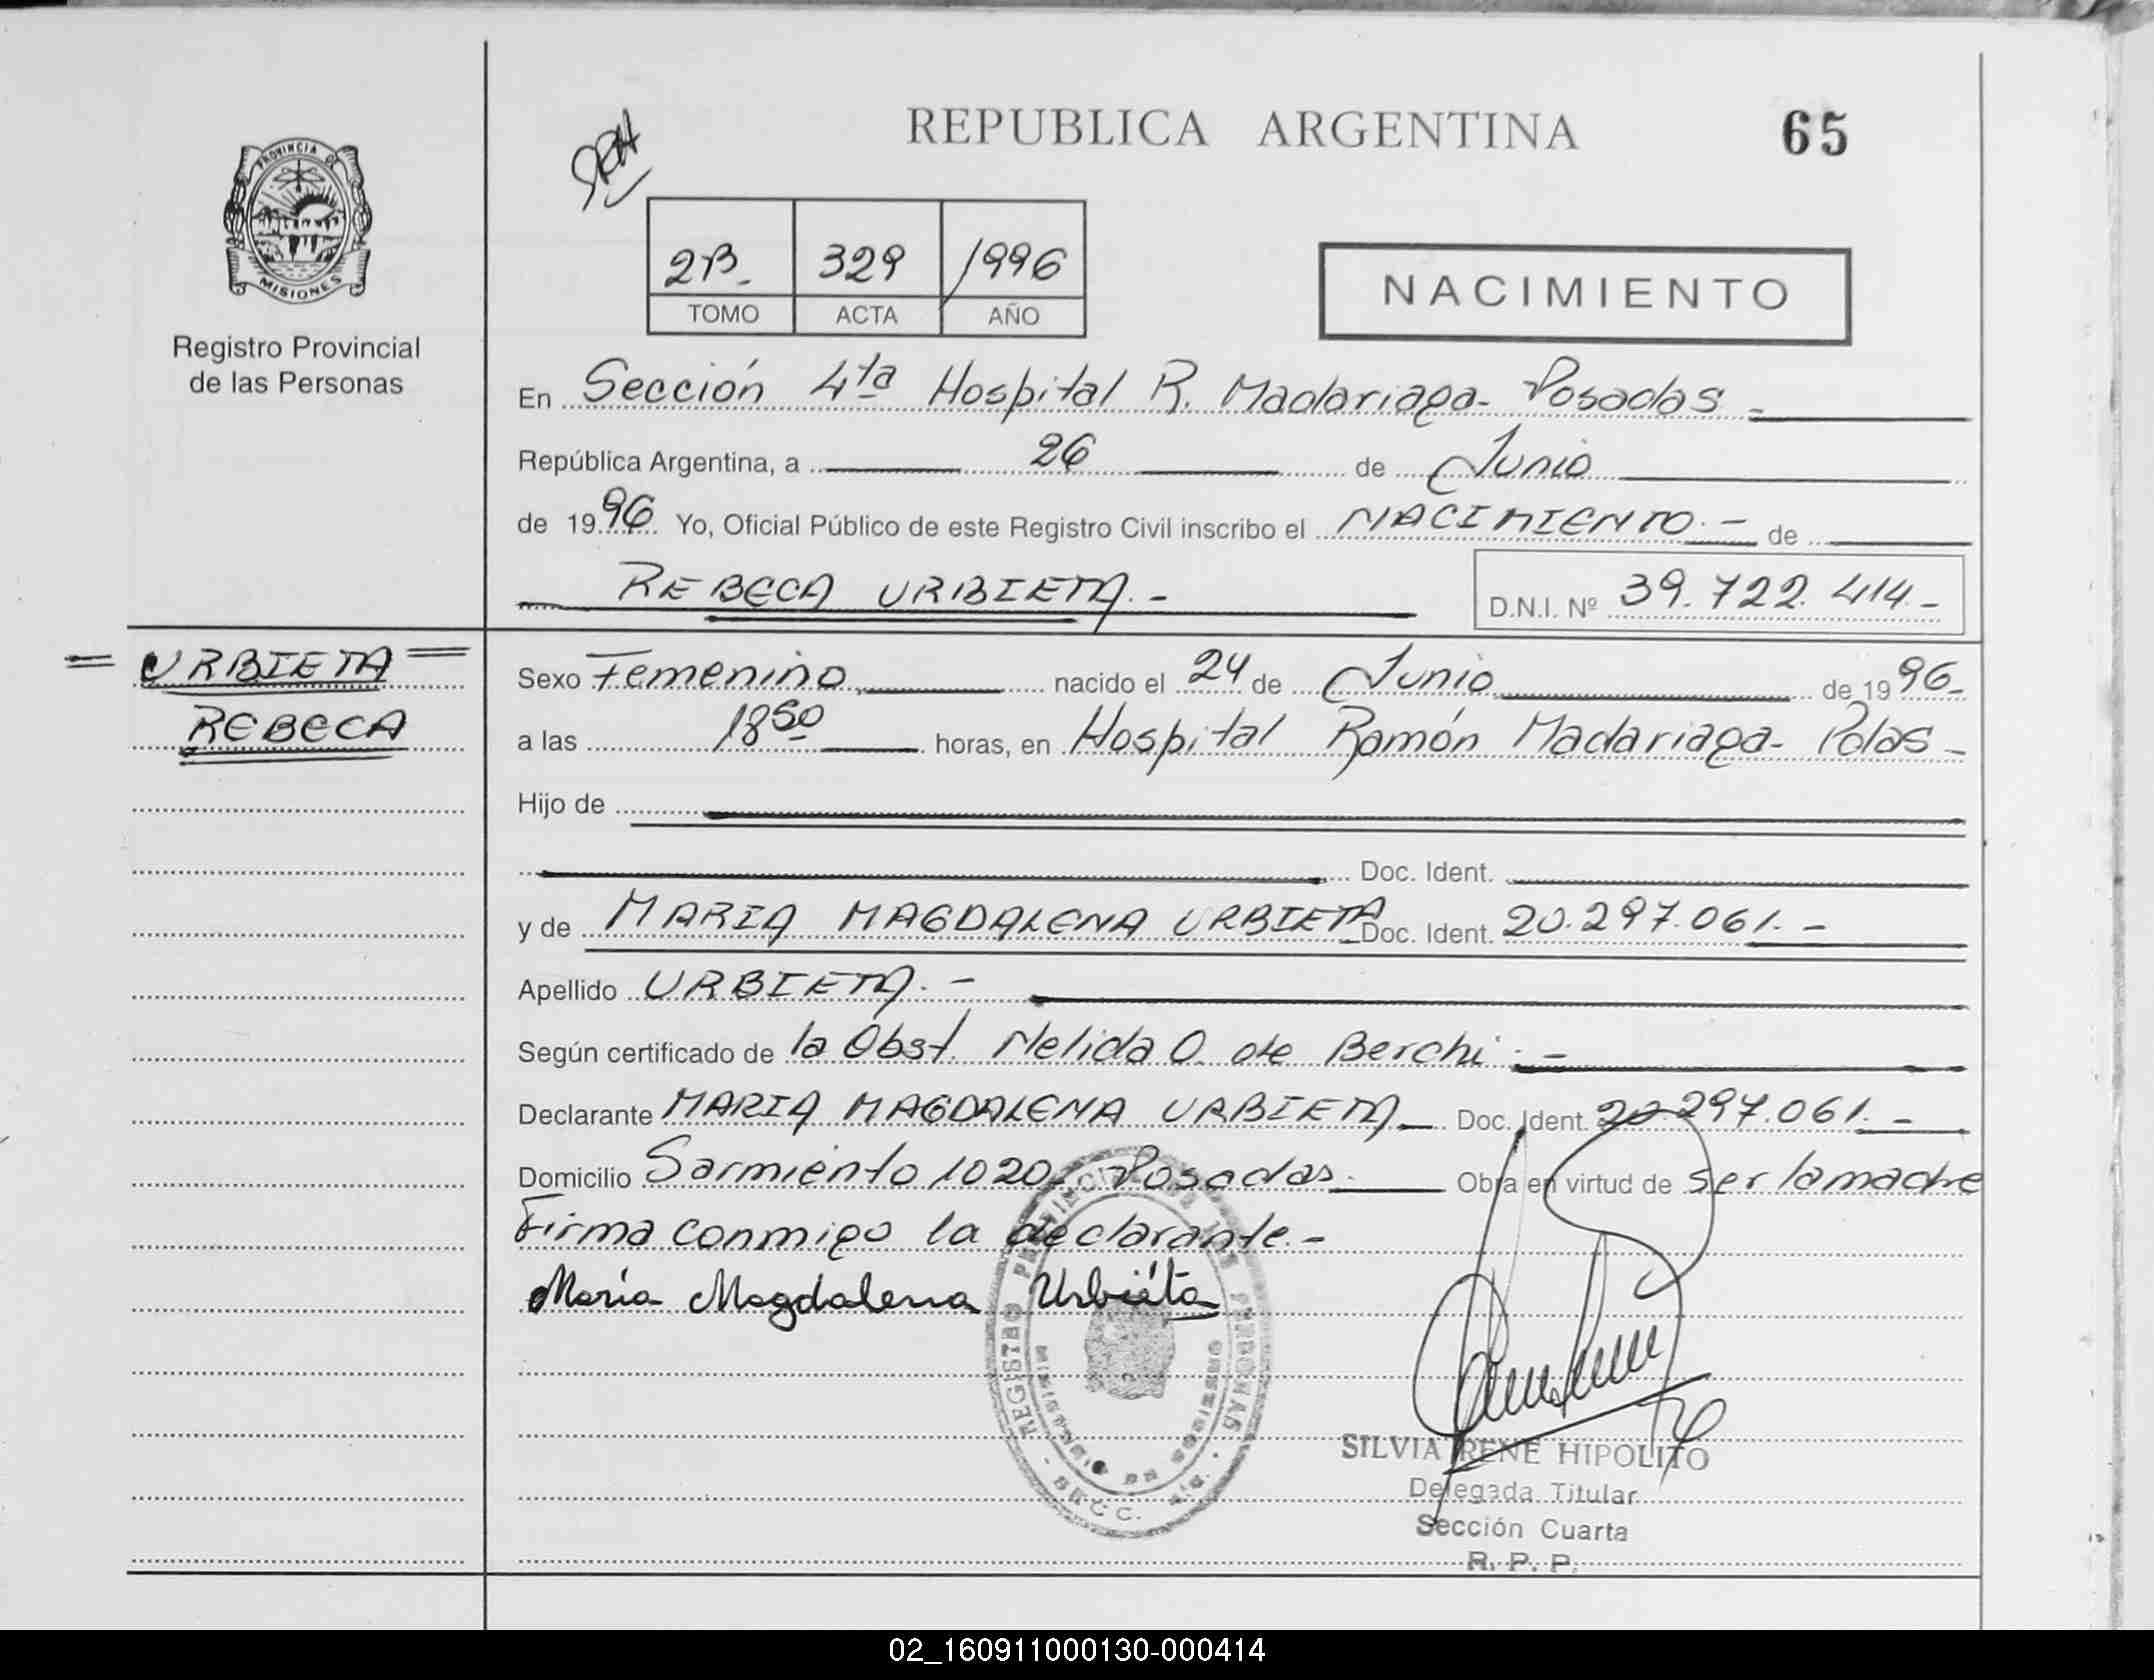 REPUBLICA ARGENTINA 65
PROVINCIA DE
MISIONES
Registro Provincial
de las Personas
2B- 329 1996
TOMO ACTA AÑO
NACIMIENTO
En Sección 4ta Hospital R. Madariaga- Posadas -
República Argentina, a 26 de Junio
de 1996 Yo, Oficial Público de este Registro Civil inscribo el NACIMIENTO.- de
REBECA URBIETA.- D.N.I. Nº 39.722.414.-
= URBIETA =
REBECA
Sexo Femenino nacido el 24 de Junio de 1996-
a las 18 50 horas, en Hospital Ramón Madariaga- Pdas-
Hijo de
Doc. Ident.
y de MARIA MAGDALENA URBIETA Doc. Ident. 20.297.061.-
Apellido URBIETA.-
Según certificado de la Obst. Nelida O. de Berchi.-
Declarante MARIA MAGDALENA URBIETA Doc. Ident. 20.297.061.-
Domicilio Sarmiento 1020- Posadas. Obra en virtud de ser la madre
Firma conmigo la declarante.-
Maria Magdalena Urbieta
REGISTRO PROVINCIAL DE LAS PERSONAS
MINISTERIO DE GOBIERNO
SILVIA IRENE HIPOLITO
Delegada Titular
Sección Cuarta
R. P. P.
02_160911000130-000414